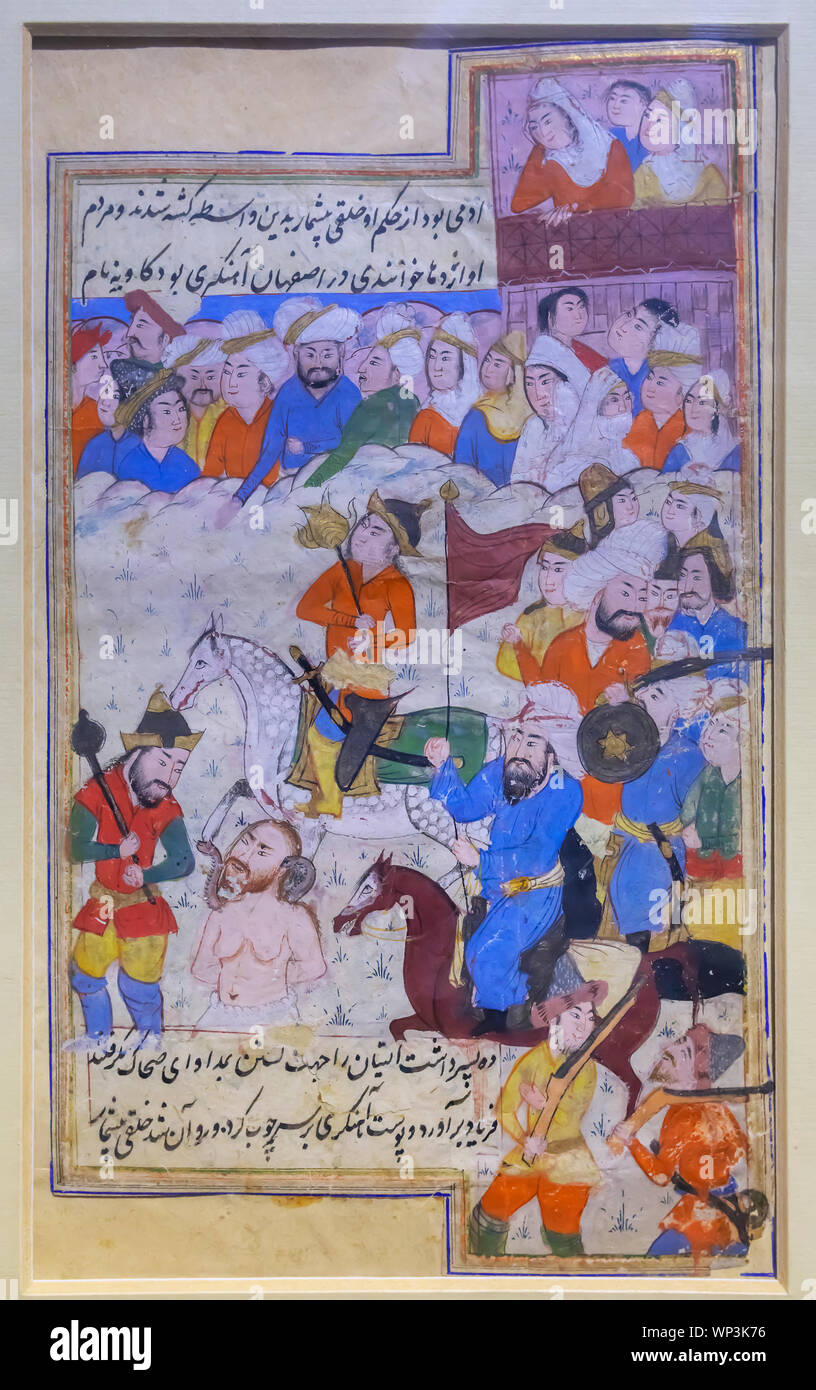 ادمی بود از حکم او خلقی بیشمار بدین واسطه کشته شدند و مردم
او اژدها خوانندی در اصفهان آهنگری بود کاویه نام
ده پسر داشت ایشان را جهت کشتن بمداوای ضحاک گرفتند
فریاد برآورد و پوست آهنگری بر سر چوب کرد و رو آن شد خلقی بیشمار
alamy
Image ID: WP3K76
www.alamy.com